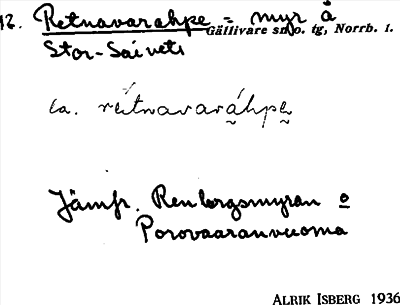 12. Retnavarahpe = myr å
Gällivare sn o. tg, Norrb. l.
Stor-Saivets
la. rétnavaráhpe̮
Jämfr. Renbergsmyran o
Porovaaranvuoma
ALRIK ISBERG 1936